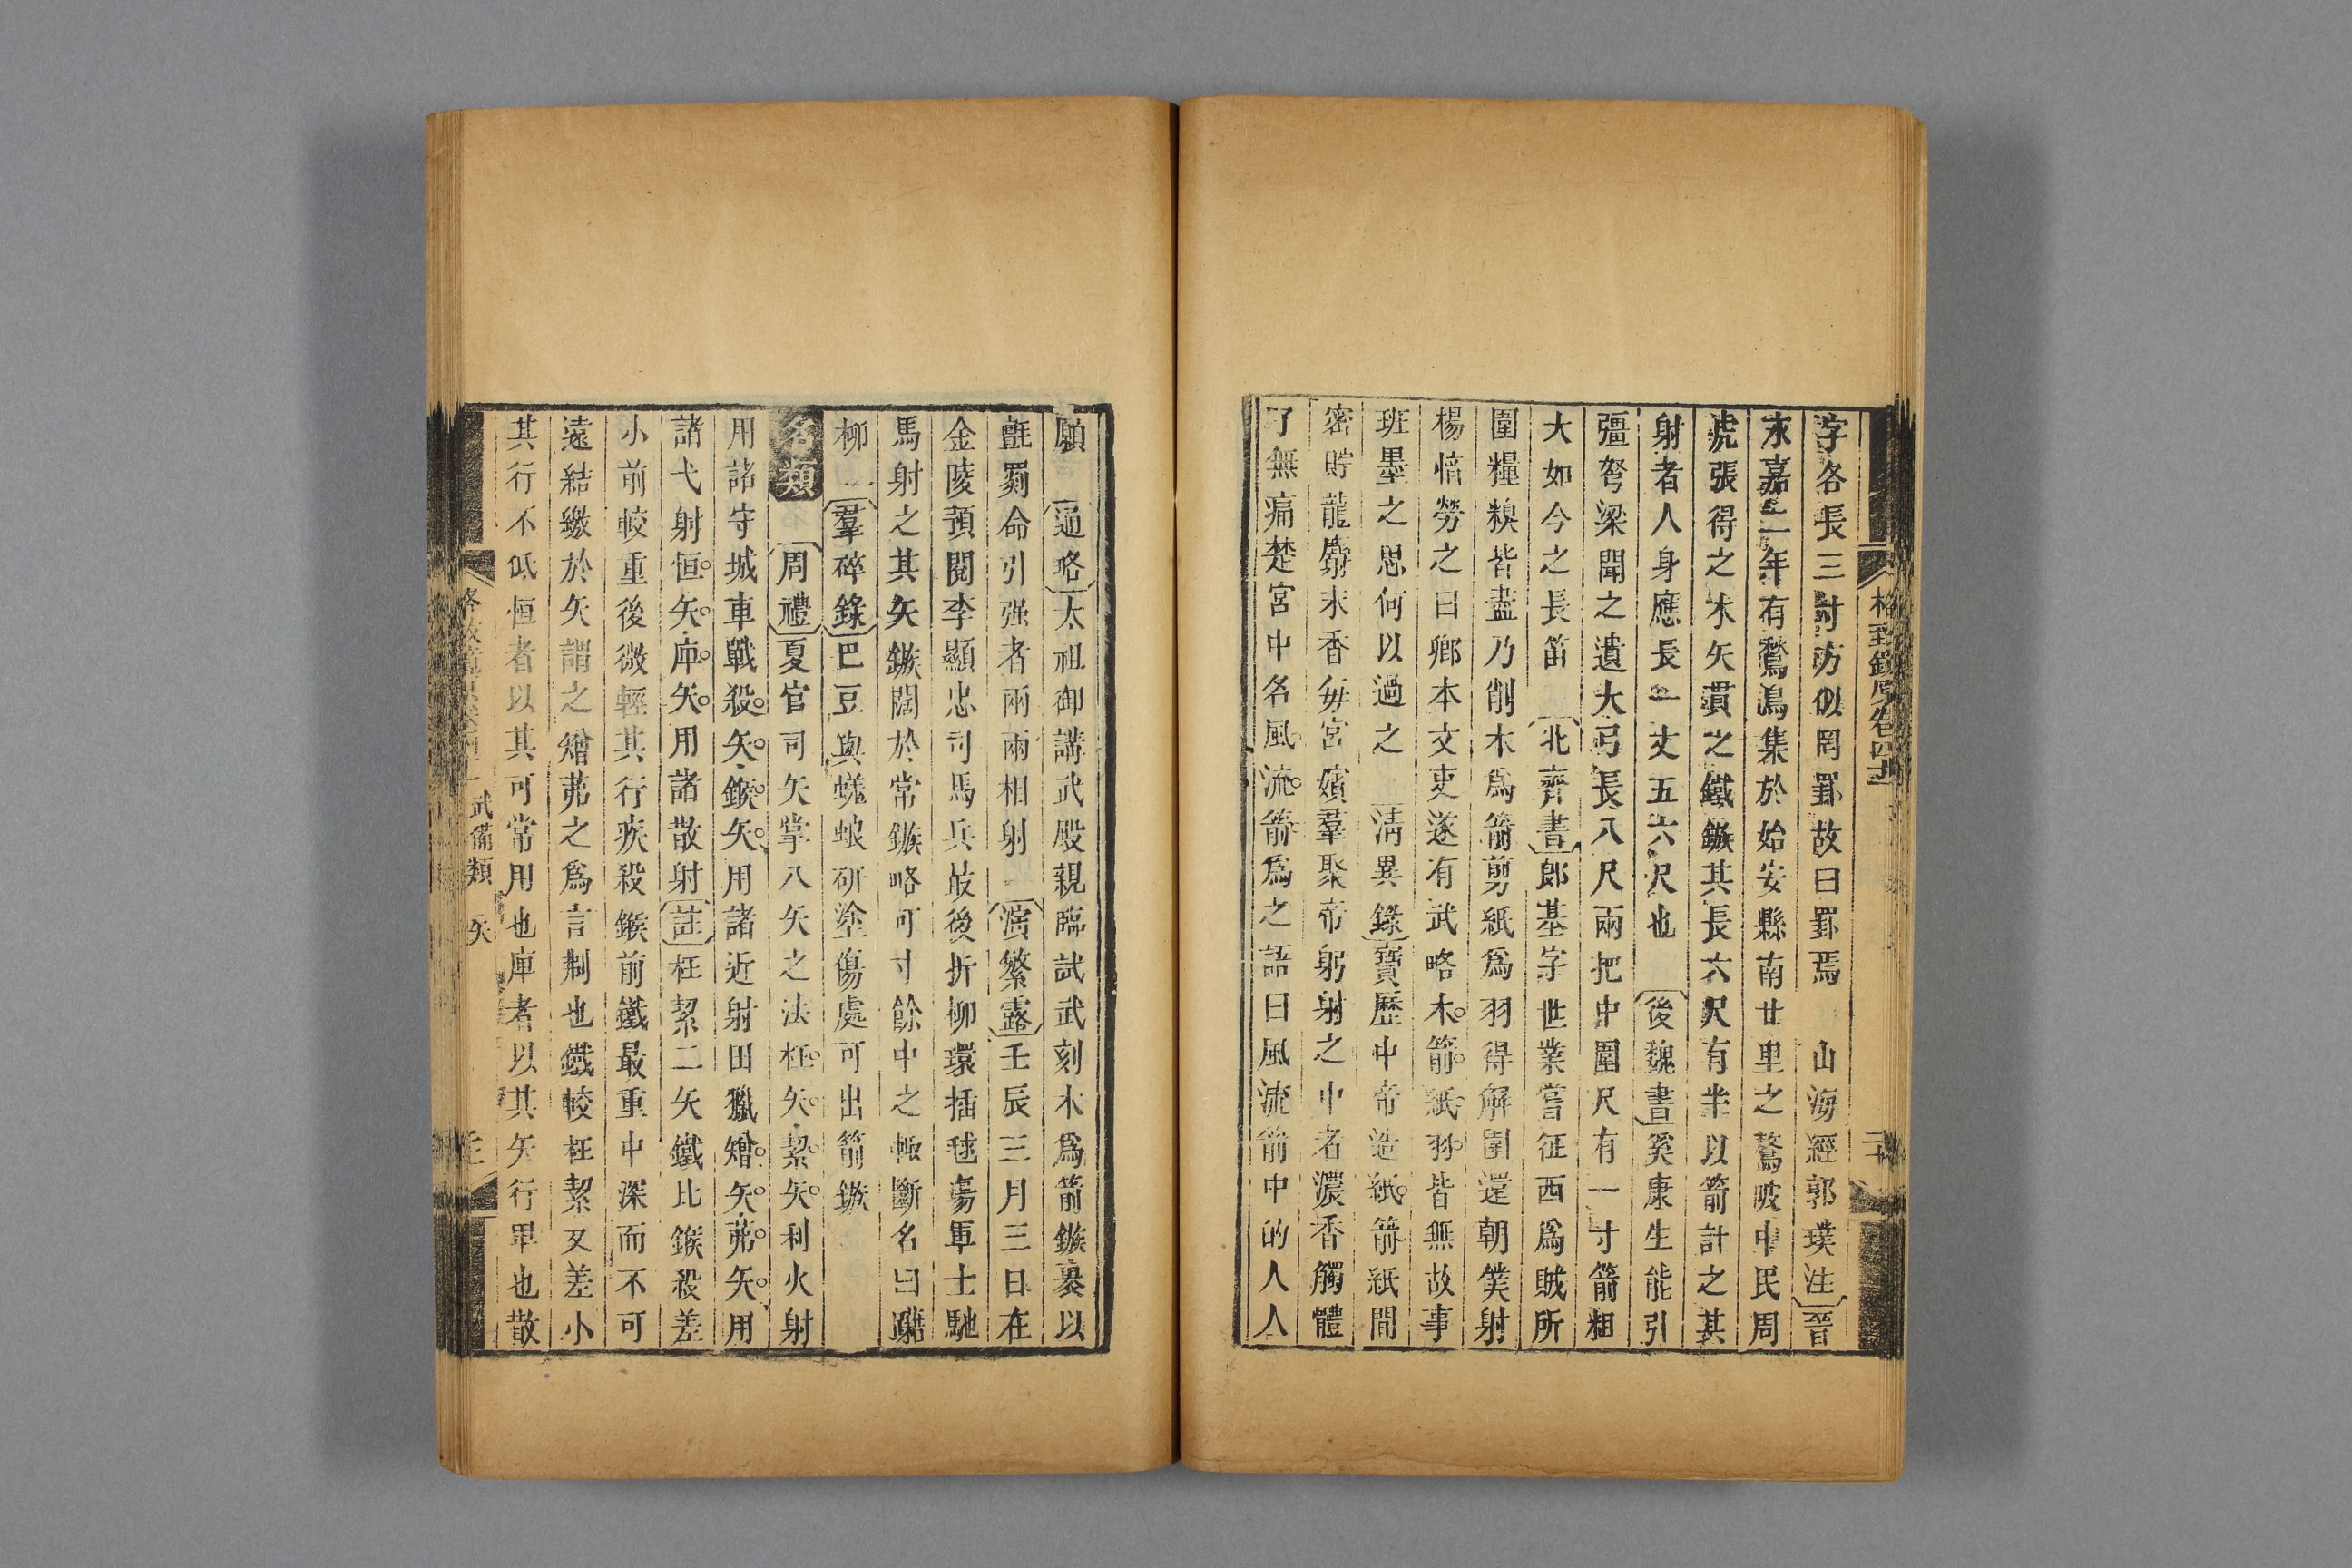 格致鏡原卷四十一
二十
字各長三尌芀似罔罽故曰罽焉 山海經郭璞注晉
末嘉二年有鶖鳥集於始安縣南廿里之鶩陂中民周
虎張得之木矢貫之鐵鏃其長六尺有半以箭計之其
射者人身應長一丈五六尺也 後魏書奚康生能引
彊弩梁聞之遺大弓長八尺兩把中圍尺有一寸箭粗
大如今之長笛 北齊書郎基字世業嘗征西為賊所
圍糧糗皆盡乃削木爲箭剪紙爲羽得解圍還朝僕射
楊愔勞之曰卿本文吏遂有武略木箭紙羽皆無故事
班墨之思何以過之 清異錄寶歷中帝造紙箭紙間
密貯龍麝末香每宮嬪羣聚帝躬射之中者濃香觸體
了無痛楚宮中名風流箭爲之語曰風流箭中的人人
願 通略太祖御講武殿親臨試武刻木爲箭鏃裹以
氈罽命引强者兩兩相射 演繁露壬辰三月三日在
金陵預閱李顯忠司馬兵故後折柳環插毬塲軍士馳
馬射之其矢鏃闊於常鏃略可寸餘中之輒斷名曰䠠
柳 羣碎錄巴豆與蜣蜋研塗傷處可出箭鏃
名類 周禮夏官司矢掌八矢之法枉矢絜矢利火射
用諸守城車戰殺矢鍭矢用諸近射田獵矰矢茀矢用
諸弋射恒矢庳矢用諸散射註枉絜二矢鐵比鍭殺差
小前較重後微輕其行疾殺鍭前鐵最重中深而不可
遠結繳於矢謂之矰茀之爲言刜也鐵較枉絜又差小
其行不低恒者以其可常用也庳者以其矢行卑也散
武備類 矢